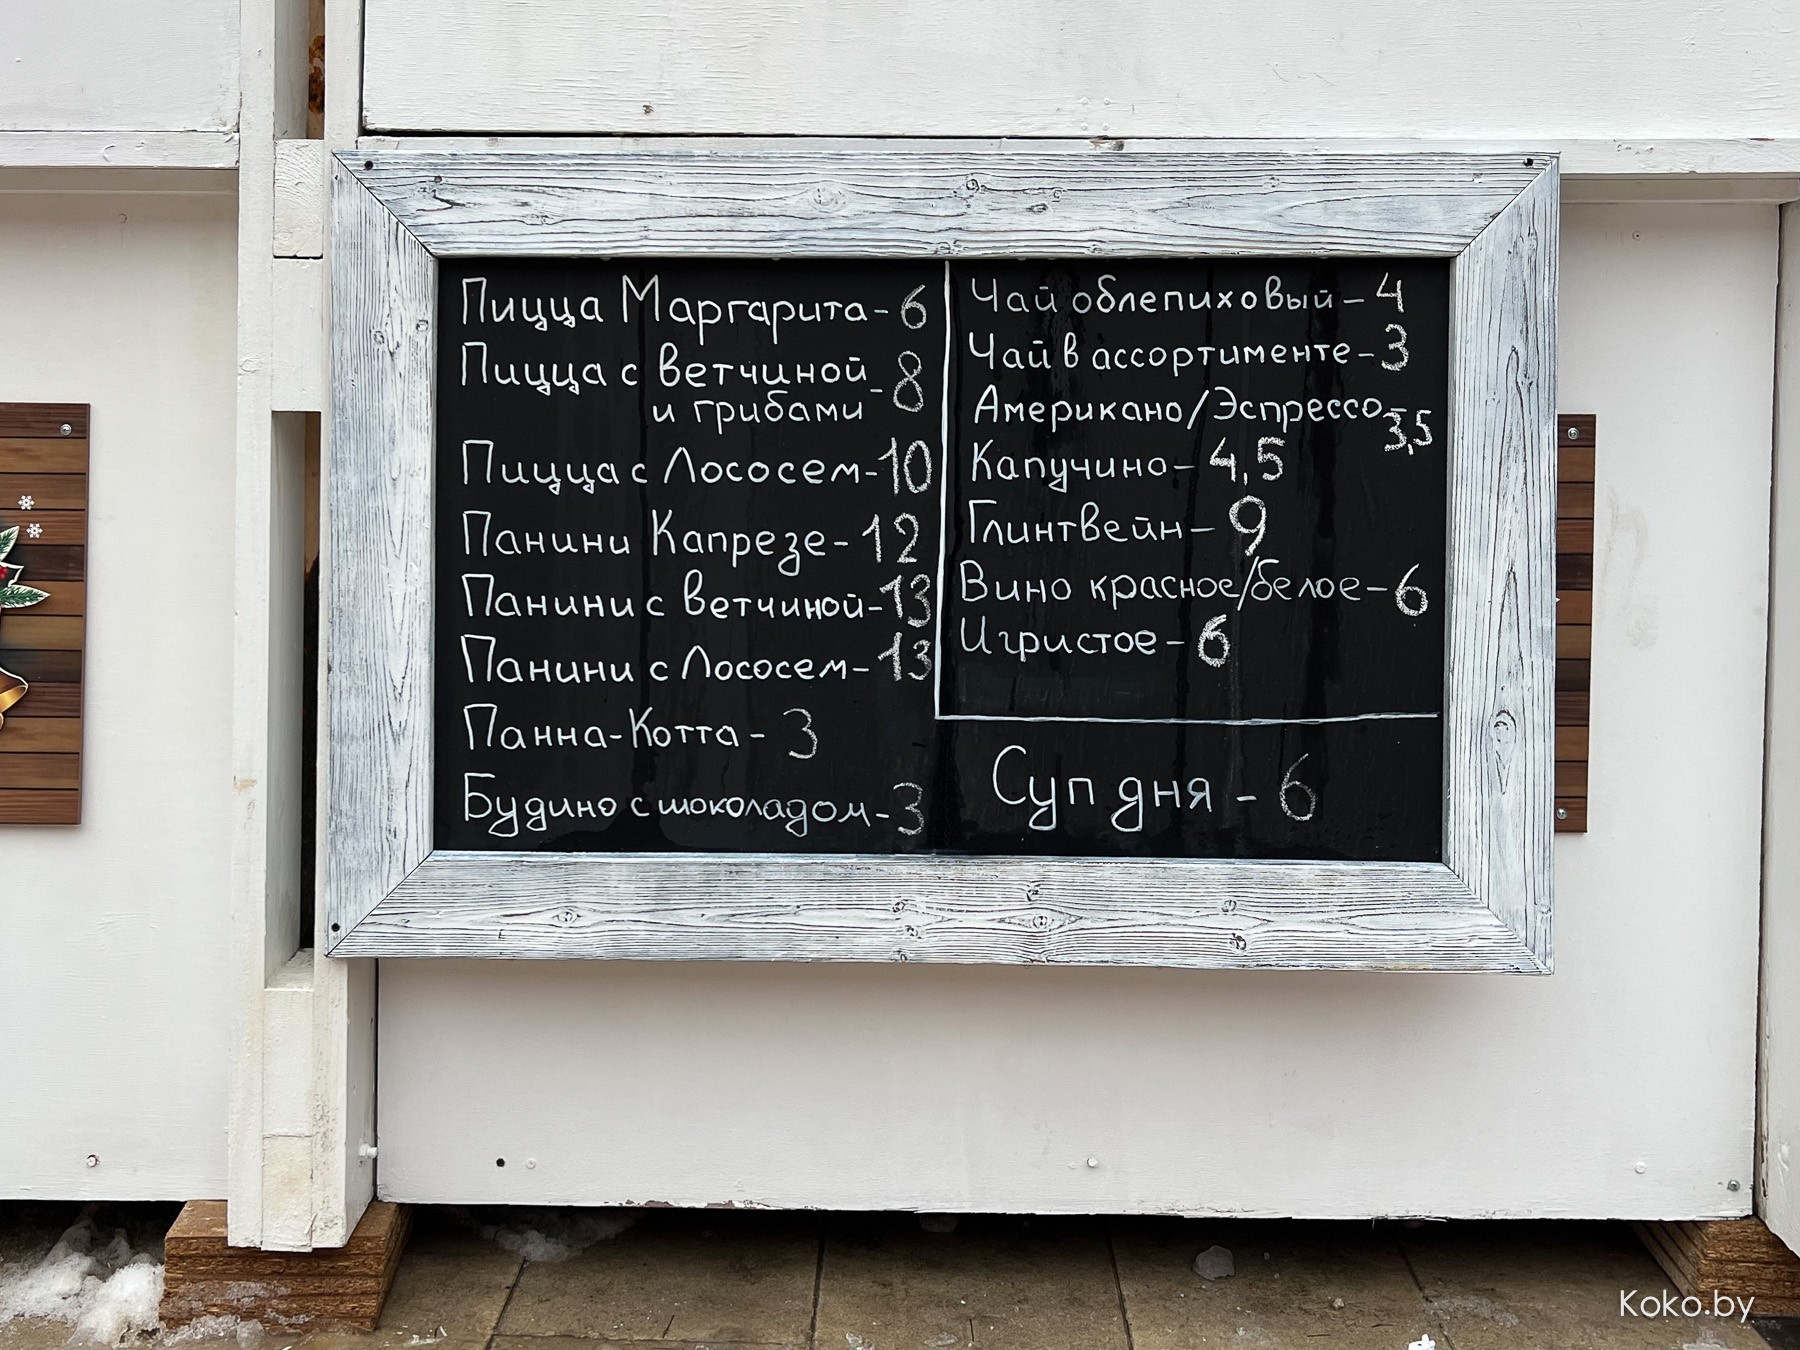 Пицца Маргарита - 6
Пицца с ветчиной - 8
и грибами
Пицца с Лососем - 10
Панини Капрезе - 12
Панини с ветчиной - 13
Панини с Лососем - 13
Панна-Котта - 3
Будино с шоколадом - 3
Чай облепиховый - 4
Чай в ассортименте - 3
Американо/Эспрессо - 3,5
Капучино - 4,5
Глинтвейн - 9
Вино красное/белое - 6
Игристое - 6
Суп дня - 6
Koko.by